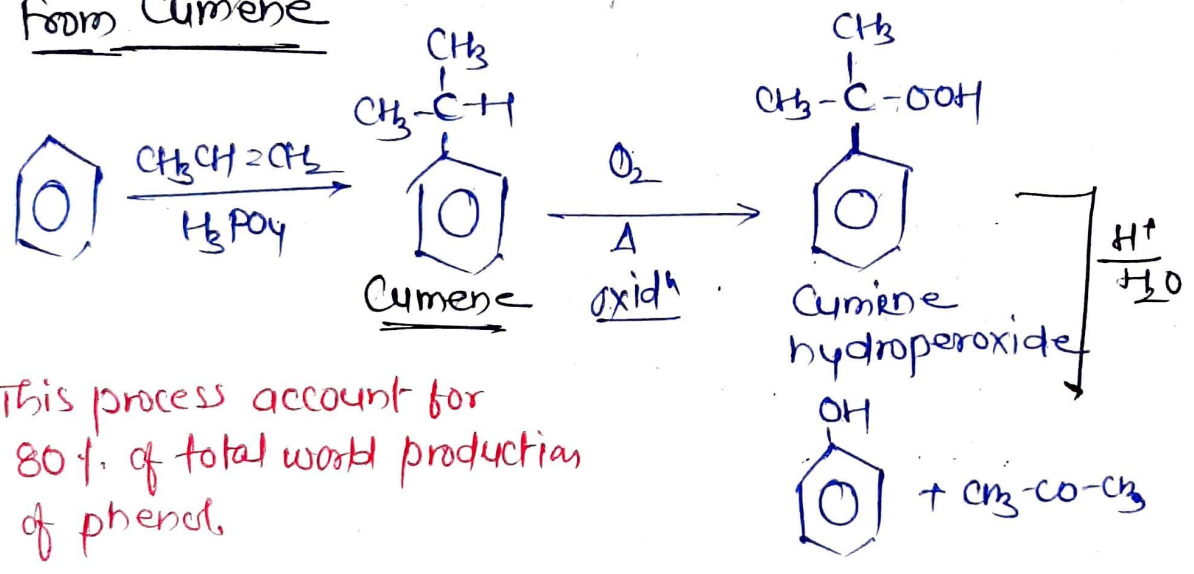 From Cumene
CH3
CH3-C-H
CH3CH=CH2
H3PO4
Cumene
O2
Δ
oxidn.
CH3
CH3-C-OOH
Cumene
hydroperoxide
H+
H2O
OH
+ CH3-CO-CH3
This process account for
80%. of total world production
of phenol.